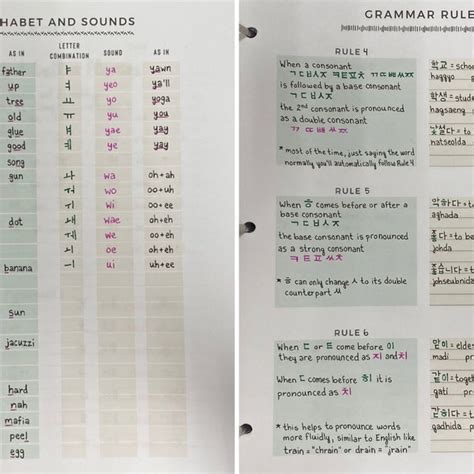 HABET AND SOUNDS
AS IN
LETTER COMBINATION
SOUND
AS IN
father ㅑ ya yawn
up ㅕ yeo ya'll
tree ㅛ yo yoga
old ㅠ yu you
glue ㅒ yae yay
good ㅖ ye yay
song
gun ㅘ wa oh+ah
ㅝ wo oo+uh
ㅟ wi oo+ee
dot ㅙ wae oh+eh
ㅞ we oo+eh
ㅚ oe oh+eh
banana ㅢ ui uh+ee
sun
jacuzzi
hard
nah
mafia
peel
egg
GRAMMAR RULE
RULE 4
When a consonant
ㄱㄷㅂㅅㅈ ㅋㅌㅍㅊ ㄲㄸㅃㅆㅉ
is followed by a base consonant
ㄱㄷㅂㅅㅈ
the 2nd consonant is pronounced
as a double consonant
ㄲ ㄸㅃㅆㅉ
* most of the time, just saying the word
normally you'll automatically follow Rule 4
학교 = schoo
haggyo
학생 = stude
hagsaeng
낯설다 = to
natseolda
RULE 5
When ㅎ comes before or after a
base consonant
ㄱㄷㅂㅅㅈ
the base consonant is pronounced
as a strong consonant
ㅋㅌㅍㅆㅊ
* ㅎ can only change ㅅ to its double
counterpart ㅆ
= to b
aghada
다 = to be
johda
좋습니다 =
johseubnida
RULE 6
When ㄷ or ㅌ come before 이
they are pronounced as 지 and 치
When ㄷ comes before 히 it is
pronounced as 치
* this helps to pronounce words
more fluidly, similar to English like
train = "chrain" or drain = "jrain"
맏이 = elde
madi pro
같이 = toge
gati pro
= to
gadhida